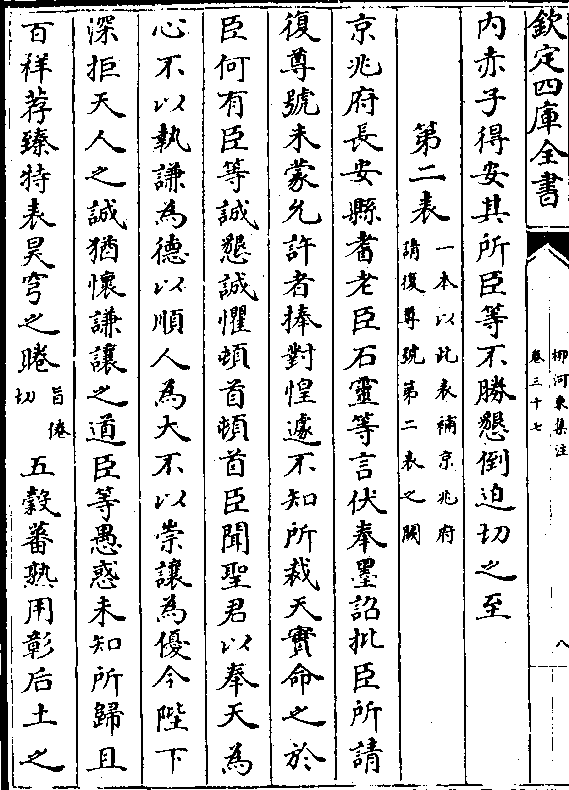 欽定四庫全書
柳河東集注
卷三十七
八
内赤子得安其所臣等不勝懇倒迫切之至
第二表一本以此表補京兆府請復尊號第二表之闕
京兆府長安縣耆老臣石靈等言伏奉墨詔批臣所請
復尊號未蒙允許者捧對惶遽不知所裁天實命之於
臣何有臣等誠懇誠懼頓首頓首臣聞聖君以奉天為
心不以執謙為德以順人為大不以崇讓為優今陛下
深拒天人之誠猶懷謙讓之道臣等愚惑未知所歸且
百祥荐臻特表昊穹之睠旨倦切五穀蕃熟用彰后土之